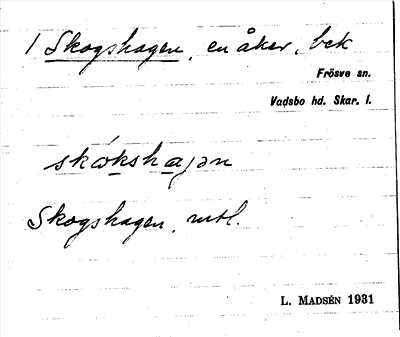 1 Skogshagen, en åker, bek
Frösve sn.
Vadsbo hd. Skar. l.
skókshagən
Skogshagen, mtl.
L. MADSÉN 1931